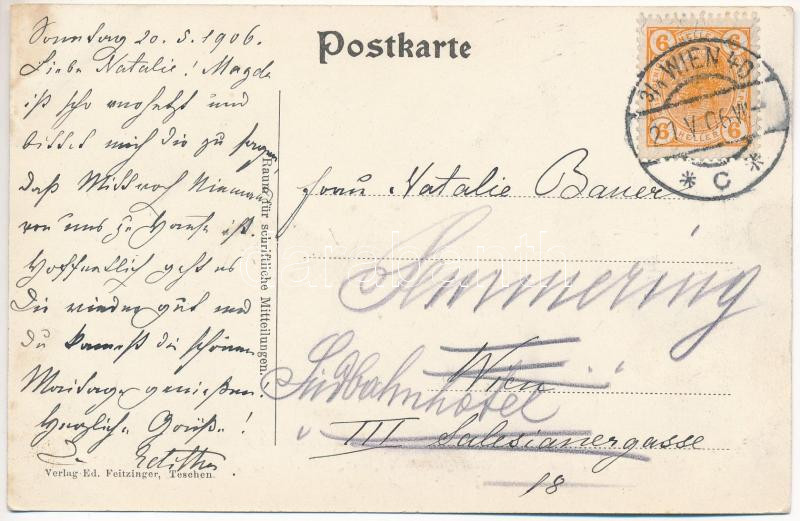 Sonntag 20. 5. 1906.
Liebe Natalie! Magda
ist sehr verhetzt und
bittet mich dir zu sagen
daß Mittwoch Niemand
von uns zu Hause ist.
Hoffentlich geht es
Dir wieder gut und
Du kannst die schönen
Maitage genießen.
Herzliche Grüße!
Edith
Verlag Ed. Feitzinger, Teschen.
Raum für schriftliche Mitteilungen.
Postkarte
6 HELLER 6
3/1 WIEN 40
21 V 06 VII
* C *
Frau Natalie Bauer
Semmering
Wien
Südbahnhotel
III Salesianergasse
18
darabanth